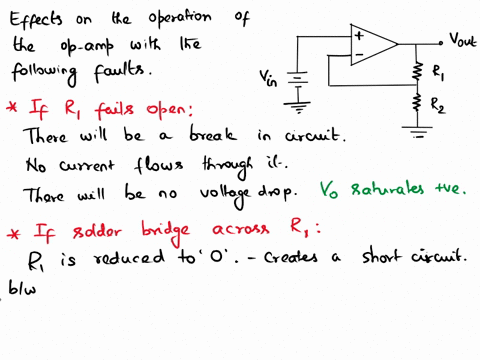 Effects on the operation of
the op-amp with the
following faults.
+
-
Vout
Vin
R1
R2
* If R1 fails open:
There will be a break in circuit.
No current flows through it.
There will be no voltage drop. Vo saturates +ve.
* If solder bridge across R1:
R1 is reduced to '0'. - Creates a short circuit.
b/w